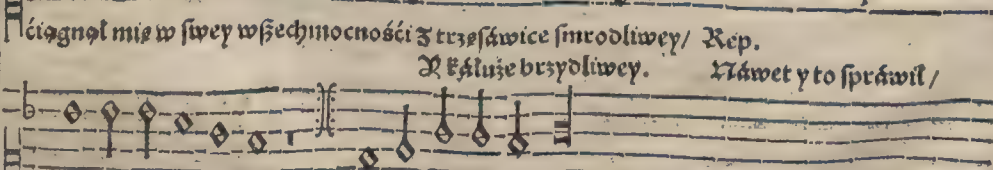 ćiągnął mię w swey wszechmocnośći Z trzęsáwice smrodliwey/ Rep.
Y káłuże brzydliwey. Náwet y to spráwił/